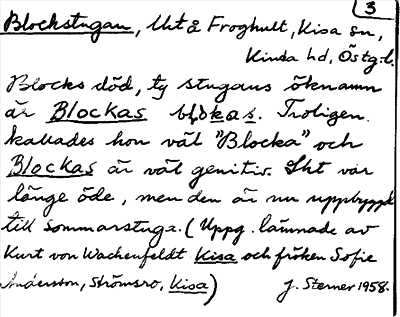 3
Blockstugan, lht å Froghult, Kisa sn,
Kinda hd, Östg. l.
Blocks död, ty stugans öknamn
är Blockas blokas. Troligen
kallades hon väl "Blocka" och
Blockas är väl genitiv. Lht var
länge öde, men den är nu uppbyggd
till sommarstuga. (Uppg. lämnade av
Kurt von Wachenfeldt Kisa och fröken Sofie
Andersson, Strömsro, Kisa) J. Sterner 1958.